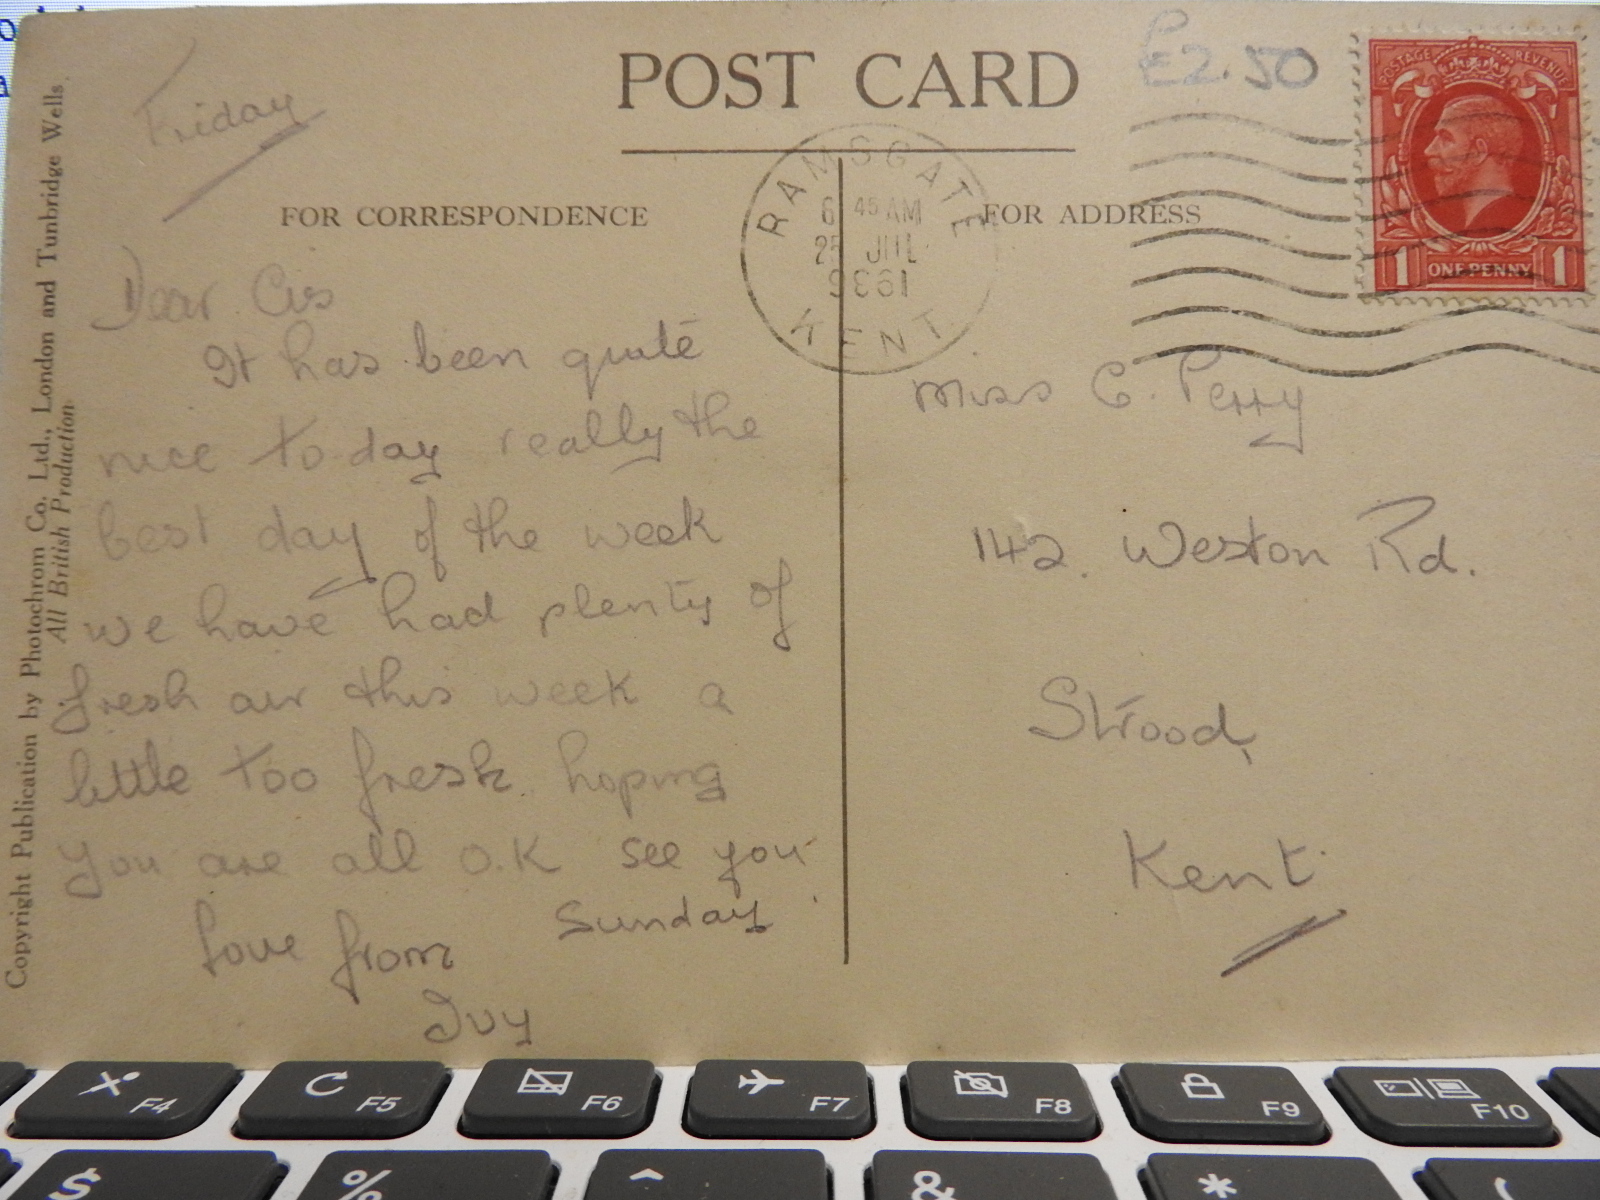 POST CARD
£2.50
Friday
FOR CORRESPONDENCE
FOR ADDRESS
POSTAGE REVENUE
1 ONE PENNY 1
RAMSGATE
6 45 AM
25 JUL
KENT
Dear Cis
It has been quite
nice to day really the
best day of the week
we have had plenty of
fresh air this week a
little too fresh hoping
you are all O.K see you
Sunday
love from
Ivy
Miss C. Perry
142. Weston Rd.
Strood,
Kent.
Copyright Publication by Photochrom Co. Ltd., London and Tunbridge Wells.
All British Production
F4
F5
F6
F7
F8
F9
F10
$
%
^
&
*
(